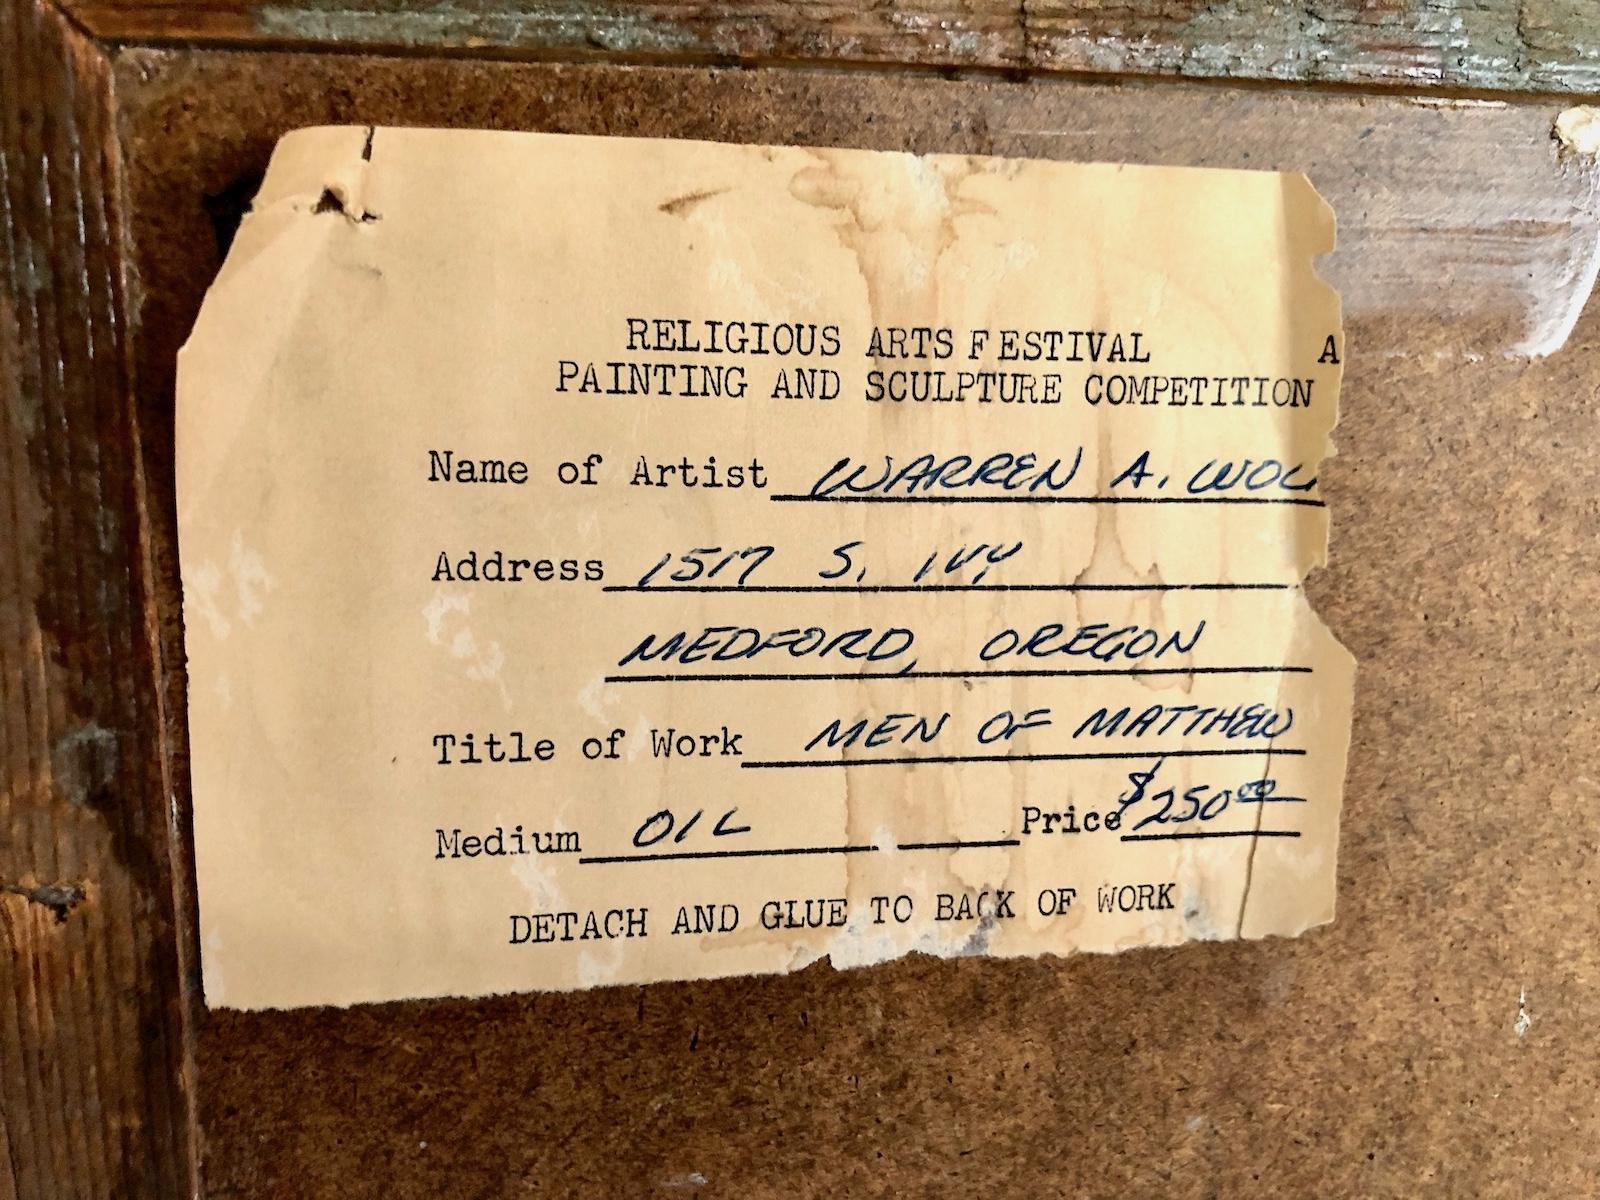 RELIGIOUS ARTS FESTIVAL A
PAINTING AND SCULPTURE COMPETITION
Name of Artist WARREN A. WOL
Address 1517 S. IVY
MEDFORD, OREGON
Title of Work MEN OF MATTHEW
Medium OIL Price $250.00
DETACH AND GLUE TO BACK OF WORK